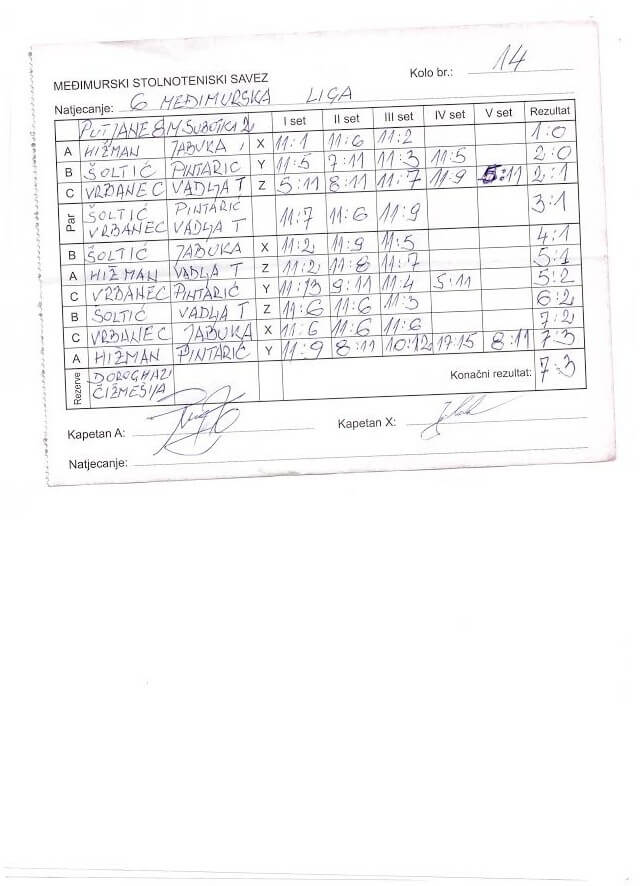 MEĐIMURSKI STOLNOTENISKI SAVEZ
Kolo br.: 14
Natjecanje: 6 MEĐIMURSKA LIGA
PUTJANE 8 M SUBOTICA 2 I set II set III set IV set V set Rezultat
A HIŽMAN JABUKA X 11:1 11:6 11:2 1:0
B ŠOLTIĆ PINTARIĆ Y 11:5 7:11 11:3 11:5 2:0
C VRBANEC VADLJA T Z 5:11 8:11 11:7 11:9 5:11 2:1
Par ŠOLTIĆ PINTARIĆ 11:7 11:6 11:9 3:1
VRBANEC VADLJA T
B ŠOLTIĆ JABUKA X 11:2 11:9 11:5 4:1
A HIŽMAN VADLJA T Z 11:2 11:8 11:7 5:1
C VRBANEC PINTARIĆ Y 11:13 9:11 11:4 5:11 5:2
B ŠOLTIĆ VADLJA T Z 11:6 11:6 11:3 6:2
C VRBANEC JABUKA X 11:6 11:6 11:6 7:2
A HIŽMAN PINTARIĆ Y 11:9 8:11 10:12 17:15 8:11 7:3
Rezerve DOROGHAZI Konačni rezultat: 7:3
ČIŽMEŠIJA
Kapetan A:
Kapetan X:
Natjecanje: